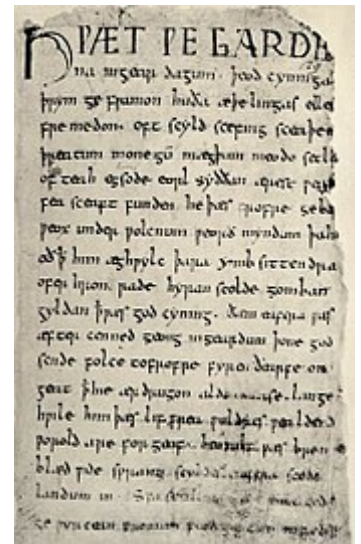 HǷÆT ǷE GARDE
na ingear dagum. þeod cyninga
þrym ge frunon huða æþelingas elle
fremedon. oft scyld scefing sceaþe
þreatum monegū mægþum meodo setl
of teah egsode eorl syððan ærest ƿear
fea sceaft funden he þæs frofre geba
ƿeox under ƿolcnum ƿeorð myndum þah
oð ꝥ him æghƿylc þara ymb sittendra
ofer hron rade hyran scolde gomban
gyldan ꝥ ƿæs god cyning. ðæm eafera ƿæs
æfter cenned geong ingeardum þone god
sende folce tofrofre fyren ðearfe on
geat ꝥ hie ær drugon aldor ase. lange
hƿile him þæs lif frea ƿuldres ƿealdend
ƿorold are for geaf. beoƿulf ƿæs breme
blæd ƿide sprang scyldes eafera scede
landum in. Sƿa gode
ge ƿyrcean fromum feoh giftum